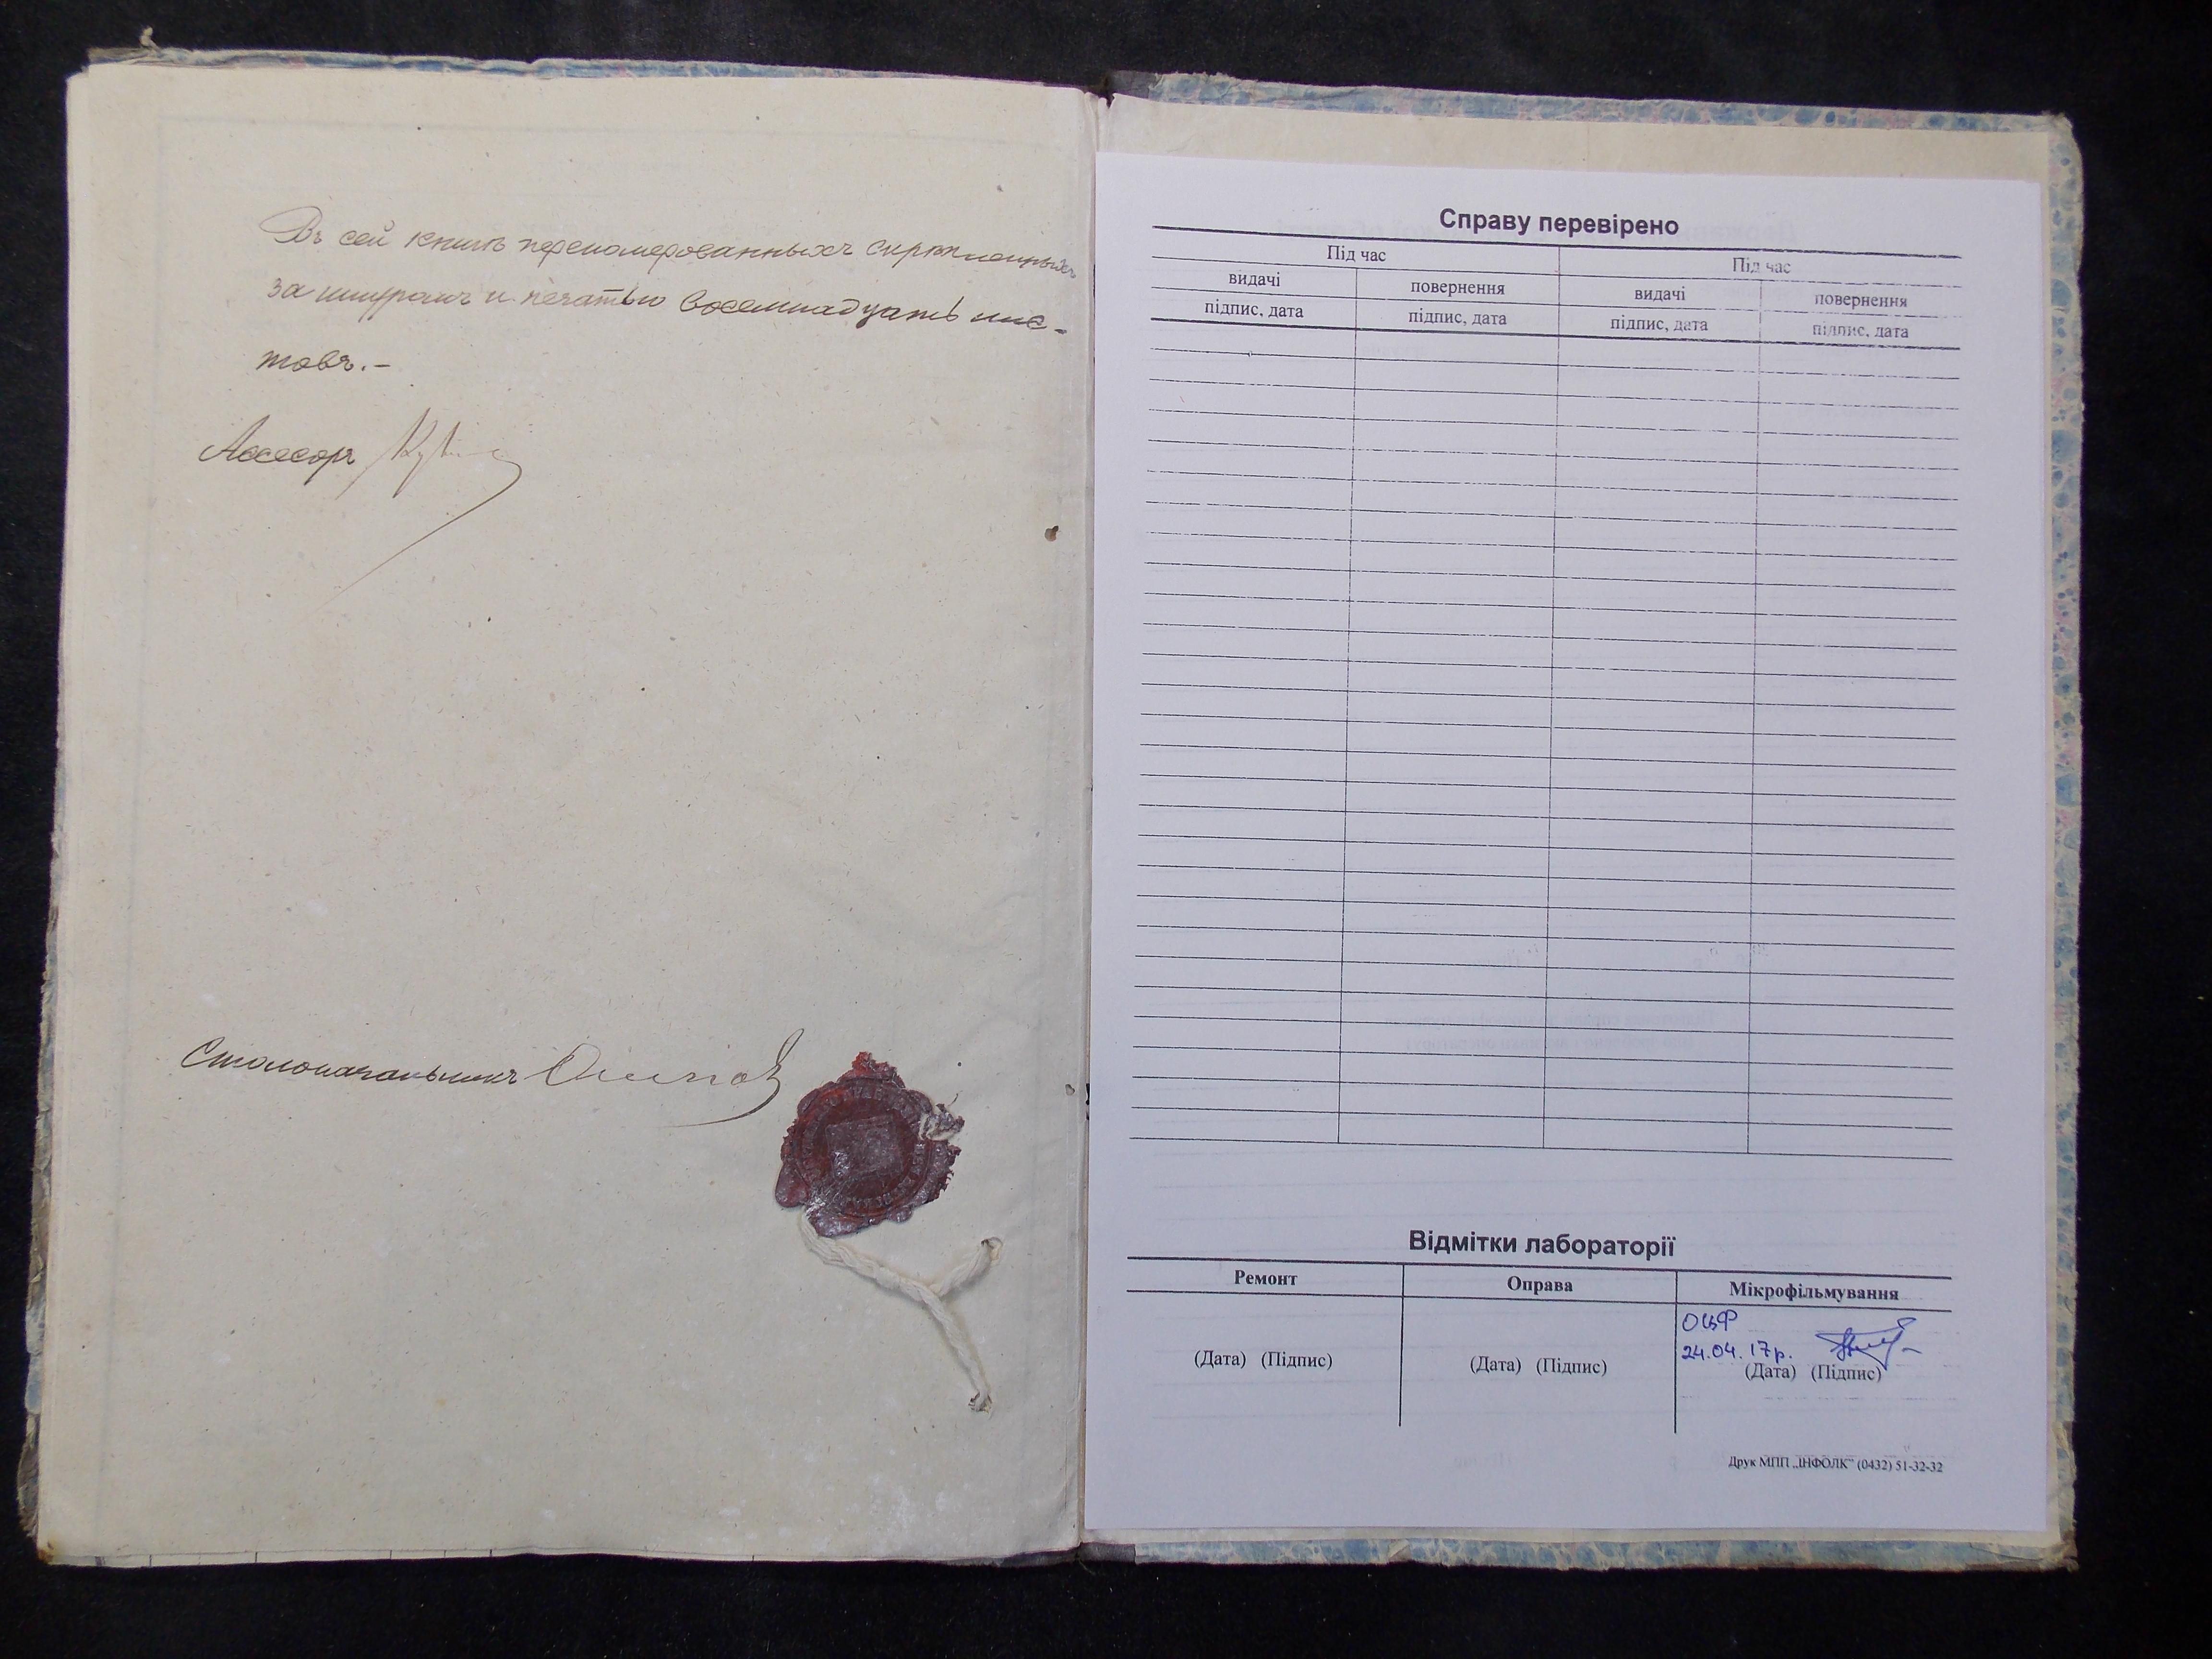 Въ сей книгѣ переномерованныхъ скрѣпленныхъ
за шнуромъ и печатью восемнадцать лис-
товъ.-
Асесоръ
Столоначальникъ
Справу перевірено
Під час Під час
видачі повернення видачі повернення
підпис, дата підпис, дата підпис, дата підпис, дата
Відмітки лабораторії
Ремонт Оправа Мікрофільмування
ОЦФ
24.04.17р.
(Дата) (Підпис) (Дата) (Підпис) (Дата) (Підпис)
Друк МПП „ІНФОЛК” (0432) 51-32-32